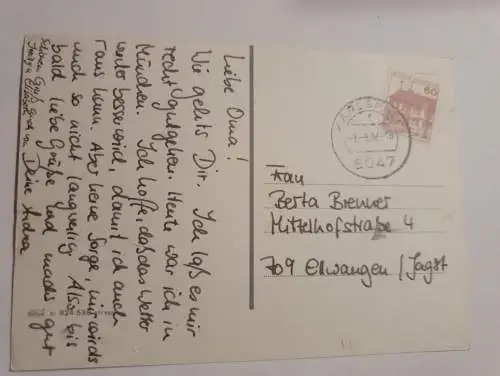 Liebe Oma!
Wie gehts Dir. Ich laß es mir
recht gutgehen. Heute war ich in
München. Ich hoffe, daß das Wetter
wieder besser wird, damit ich auch
raus kann. Aber keine Sorge, mir wirds
auch so nicht langweilig. Also bis
bald liebe Grüße und machs gut
Deine Andrea
Schönen Gruß auch von
Elisabeth
60
8047
Frau
Berta Brenner
Mittelhofstraße 4
709 Ellwangen / Jagst